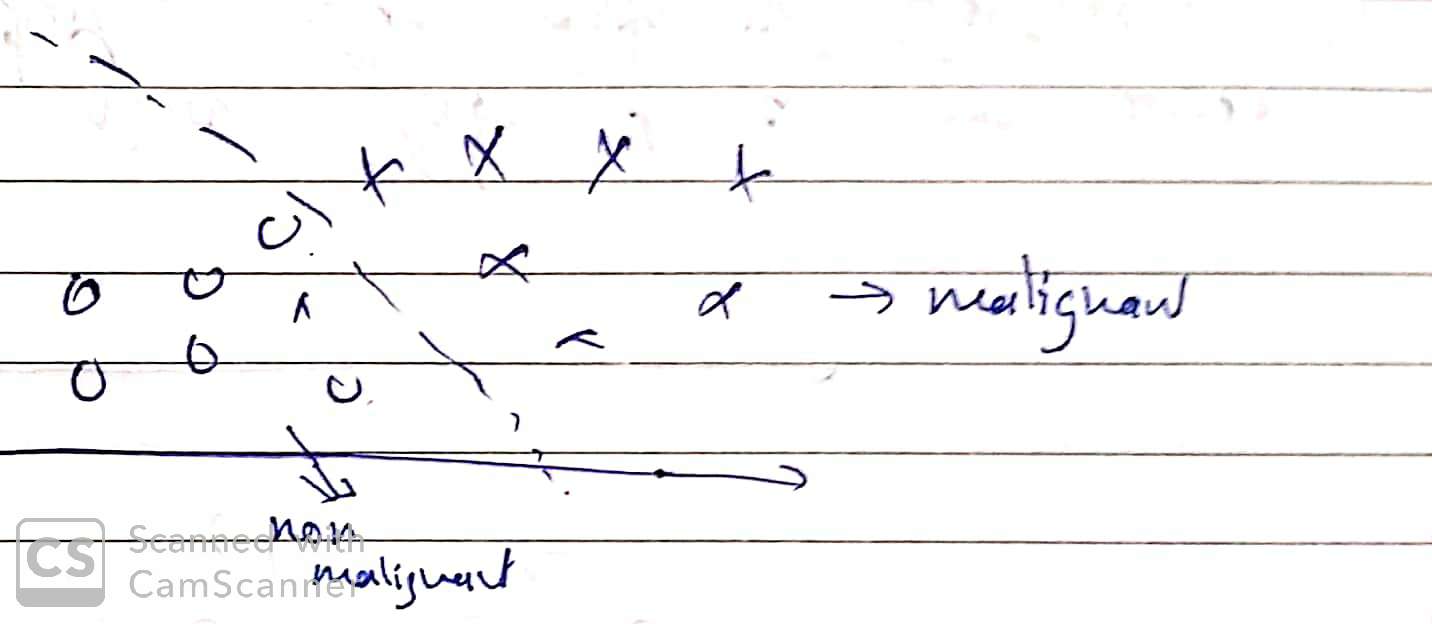 → malignant
non
malignant
CS
Scanned with
CamScanner